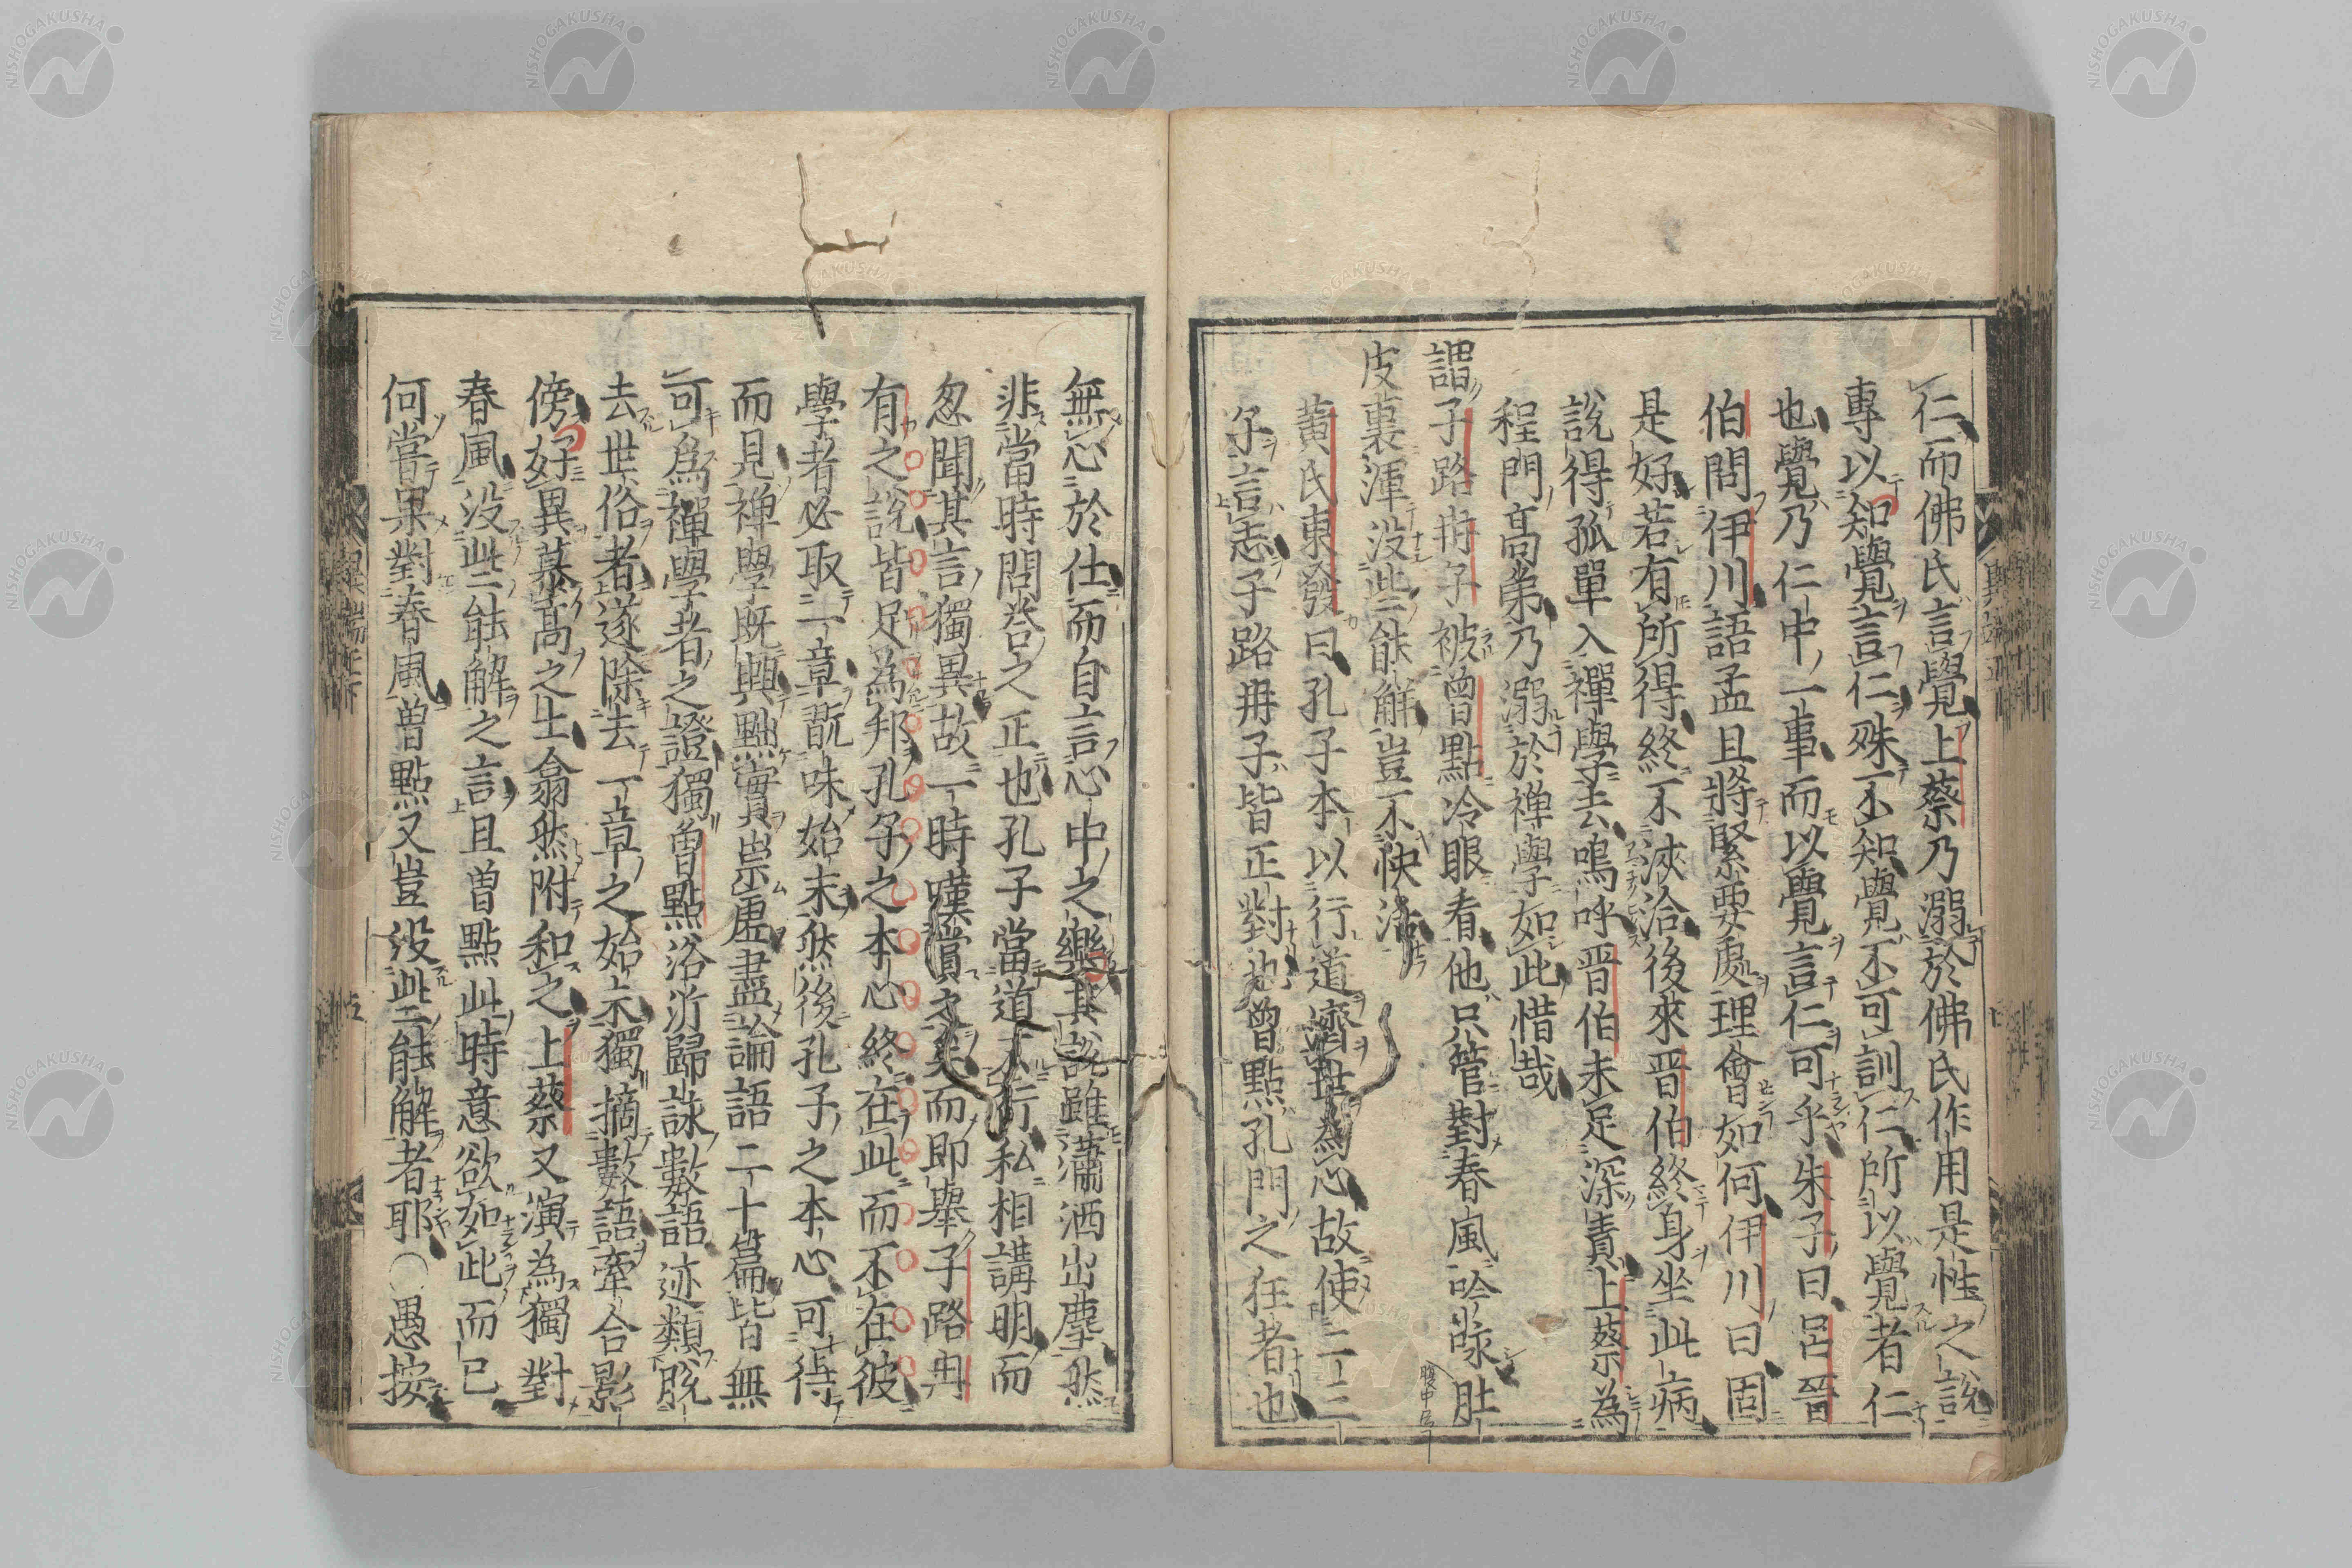 仁而佛氏言覺上蔡乃溺於佛氏作用是性之說
專以知覺言仁殊不知覺不可訓仁所以覺者仁
也覺乃仁中一事而以覺言仁可乎朱子曰呂晉
伯問伊川語孟且將緊要處理會如何伊川曰固
是好若有所得終不浹洽後來晋伯終身坐此病
說得孤單入禪學去嗚呼晋伯未足深責上蔡為
程門高弟乃溺於禅學如此惜哉
謂子路冉子被曾點冷眼看他只管對春風吟咏肚
皮裏渾没些能解豈不快活
黄氏東發曰孔子本以行道濟世為心故使二三
子言志子路冉子皆正對也曾點孔門之狂者也
無心於仕而自言心中之樂其說雖瀟洒出塵然
非當時問荅之正也孔子當道不行私相講明而
忽聞其言獨異故一時嘆賞之矣而即舉子路冉
有之說皆足為邦孔子之本心終在此而不在彼
學者必取一章翫味始末然後孔子之本心可得
而見禅學既興黜實崇虛盡論語二十篇皆無
可為禪學者之證獨曾點浴沂歸詠數語迹類脫
去世俗者遂除去一章之始末獨摘數語牽合影
傍好異慕高之士翕然附和之上蔡又演為獨對
春風没些能解之言且曽點此時意欲如此而已
何嘗果對春風曽點又豈没些能解者耶○愚按